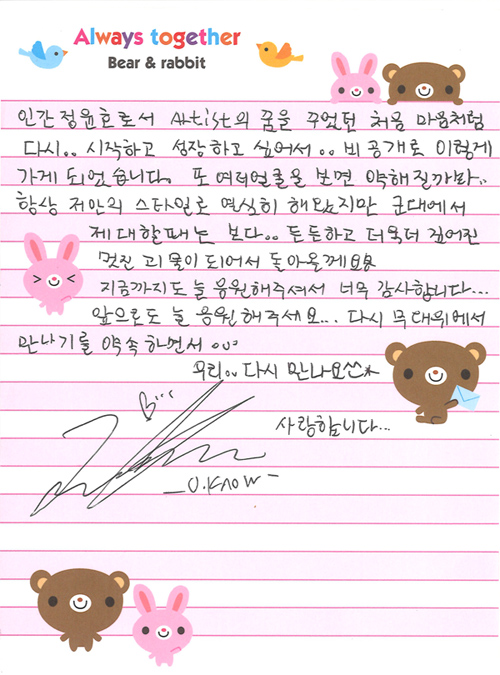 Always together
Bear & rabbit
인간 정윤호로서 Artist의 꿈을 꾸었던 처음 마음처럼
다시.. 시작하고 성장하고 싶어서.. 비공개로 이렇게
가게 되었습니다. 또 여러얼굴을 보면 약해질까봐..
항상 저만의 스타일로 열심히 해왔지만 군대에서
제대할때는 보다.. 든든하고 더욱더 깊어진
멋진 괴물이 되어서 돌아올께요
지금까지도 늘 응원해주셔서 너무 감사합니다...
앞으로도 늘 응원해주세요... 다시 무대위에서
만나기를 약속하면서...
우리.. 다시 만나요^^*
사랑합니다...
-U.KNOW-